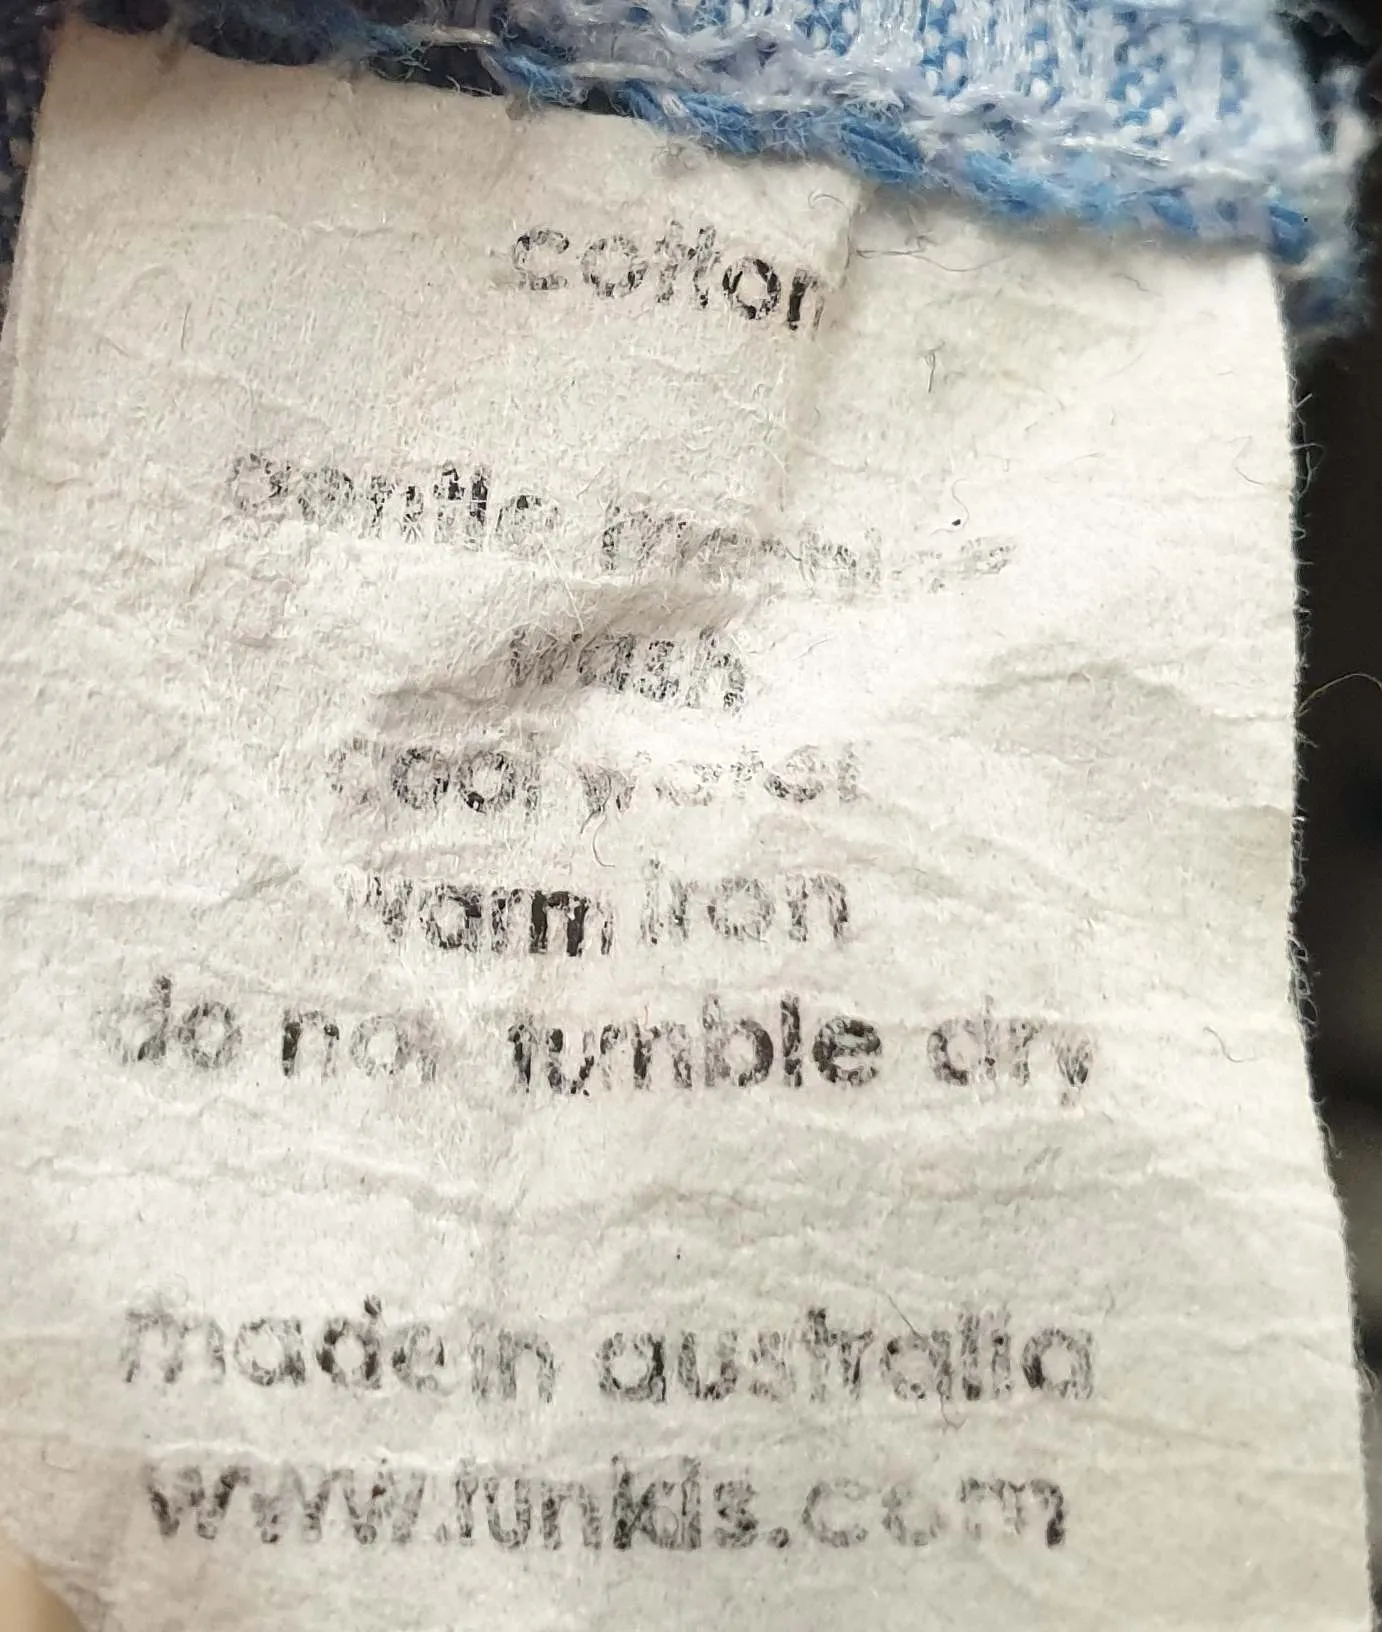 cotton
gentle machine
wash
cool water
warm iron
do not tumble dry
made in australia
www.funkis.com